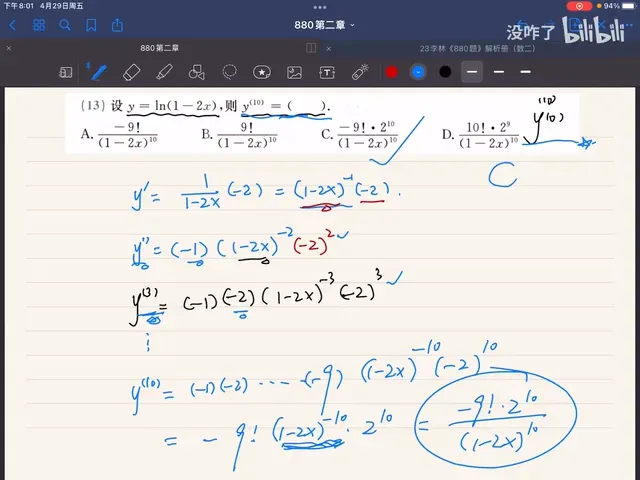 下午8:01 4月29日周五
94%
880 第二章
没咋了 bilibili
880 第二章
23李林《880题》解析册（数二）
(13) 设 y = ln(1−2x), 则 y^(10) = (    ).
A. −9!/(1−2x)^10  B. 9!/(1−2x)^10  C. −9!·2^10/(1−2x)^10  D. 10!·2^9/(1−2x)^10
y^(10)(0)
C
y' = 1/(1−2x) (−2) = (1−2x)^−1 (−2).
y'' = (−1) (1−2x)^−2 (−2)^2
y^(3) = (−1)(−2)(1−2x)^−3 (−2)^3
⋮
y^(10) = (−1)(−2) ⋯ (−9) (1−2x)^−10 (−2)^10
= −9! (1−2x)^−10 · 2^10 = −9!·2^10/(1−2x)^10